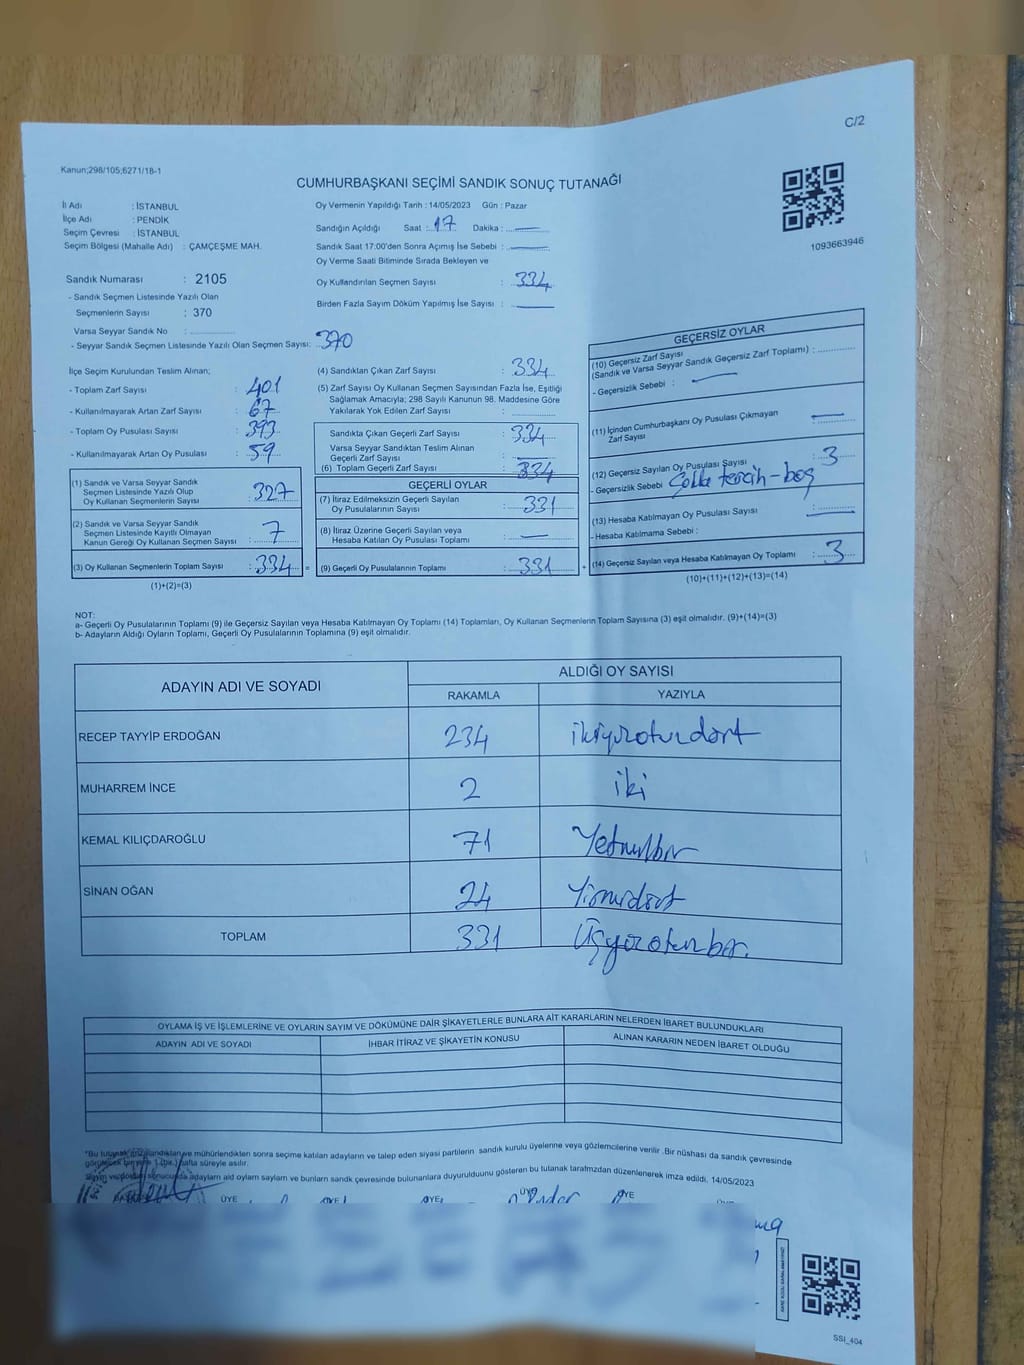 C/2
Kanun;298/105;6271/18-1
CUMHURBAŞKANI SEÇİMİ SANDIK SONUÇ TUTANAĞI
1093663946
İl Adı : İSTANBUL
İlçe Adı : PENDİK
Seçim Çevresi : İSTANBUL
Seçim Bölgesi (Mahalle Adı) : ÇAMÇEŞME MAH.
Sandık Numarası : 2105
- Sandık Seçmen Listesinde Yazılı Olan
Seçmenlerin Sayısı : 370
Varsa Seyyar Sandık No :
- Seyyar Sandık Seçmen Listesinde Yazılı Olan Seçmen Sayısı: 370
Oy Vermenin Yapıldığı Tarih : 14/05/2023 Gün : Pazar
Sandığın Açıldığı Saat : 17 Dakika : —
Sandık Saat 17:00'den Sonra Açımış İse Sebebi : —
Oy Verme Saati Bitiminde Sırada Bekleyen ve
Oy Kullandırılan Seçmen Sayısı : 334
Birden Fazla Sayım Döküm Yapılmış İse Sayısı : —
İlçe Seçim Kurulundan Teslim Alınan;
- Toplam Zarf Sayısı : 401
- Kullanılmayarak Artan Zarf Sayısı : 67
- Toplam Oy Pusulası Sayısı : 393
- Kullanılmayarak Artan Oy Pusulası : 59
(1) Sandık ve Varsa Seyyar Sandık
Seçmen Listesinde Yazılı Olup
Oy Kullanan Seçmenlerin Sayısı : 327
(2) Sandık ve Varsa Seyyar Sandık
Seçmen Listesinde Kayıtlı Olmayan
Kanun Gereği Oy Kullanan Seçmen Sayısı : 7
(3) Oy Kullanan Seçmenlerin Toplam Sayısı : 334 =
(1)+(2)=(3)
(4) Sandıktan Çıkan Zarf Sayısı : 334
(5) Zarf Sayısı Oy Kullanan Seçmen Sayısından Fazla İse, Eşitliği
Sağlamak Amacıyla; 298 Sayılı Kanunun 98. Maddesine Göre
Yakılarak Yok Edilen Zarf Sayısı :
Sandıkta Çıkan Geçerli Zarf Sayısı : 334
Varsa Seyyar Sandıktan Teslim Alınan
Geçerli Zarf Sayısı : —
(6) Toplam Geçerli Zarf Sayısı : 334
GEÇERLİ OYLAR
(7) İtiraz Edilmeksizin Geçerli Sayılan
Oy Pusulalarının Sayısı : 331
(8) İtiraz Üzerine Geçerli Sayılan veya
Hesaba Katılan Oy Pusulası Toplamı : —
(9) Geçerli Oy Pusulalarının Toplamı : 331 +
GEÇERSİZ OYLAR
(10) Geçersiz Zarf Sayısı
(Sandık ve Varsa Seyyar Sandık Geçersiz Zarf Toplamı) :
- Geçersizlik Sebebi : —
(11) İçinden Cumhurbaşkanı Oy Pusulası Çıkmayan
Zarf Sayısı : —
(12) Geçersiz Sayılan Oy Pusulası Sayısı : 3
- Geçersizlik Sebebi Çoklu tercih-boş
(13) Hesaba Katılmayan Oy Pusulası Sayısı : —
- Hesaba Katılmama Sebebi :
(14) Geçersiz Sayılan veya Hesaba Katılmayan Oy Toplamı : 3
(10)+(11)+(12)+(13)=(14)
NOT:
a- Geçerli Oy Pusulalarının Toplamı (9) ile Geçersiz Sayılan veya Hesaba Katılmayan Oy Toplamı (14) Toplamları, Oy Kullanan Seçmenlerin Toplam Sayısına (3) eşit olmalıdır. (9)+(14)=(3)
b- Adayların Aldığı Oyların Toplamı, Geçerli Oy Pusulalarının Toplamına (9) eşit olmalıdır.
ADAYIN ADI VE SOYADI ALDIĞI OY SAYISI
RAKAMLA YAZIYLA
RECEP TAYYİP ERDOĞAN 234 ikiyüzotuzdört
MUHARREM İNCE 2 iki
KEMAL KILIÇDAROĞLU 71 Yetmişbir
SİNAN OĞAN 24 Yirmidört
TOPLAM 331 Üçyüzotuzbir.
OYLAMA İŞ VE İŞLEMLERİNE VE OYLARIN SAYIM VE DÖKÜMÜNE DAİR ŞİKAYETLERLE BUNLARA AİT KARARLARIN NELERDEN İBARET BULUNDUKLARI
ADAYIN ADI VE SOYADI İHBAR İTİRAZ VE ŞİKAYETİN KONUSU ALINAN KARARIN NEDEN İBARET OLDUĞU
"Bu tutanak imzalandıktan ve mühürlendikten sonra seçime katılan adayların ve talep eden siyasi partilerin sandık kurulu üyelerine veya gözlemcilerine verilir .Bir nüshası da sandık çevresinde
görülecek bir yere 1 (bir.) hafta süreyle asılır.
Sayım ve döküm sonucunda adayların ald oyların sayların ve bunların sandk çevresinde bulunanlara duyurulduunu gösteren bu tutanak tarafmzdan düzenlenerek imza edildi. 14/05/2023
ÜYE ÜYE ÜYE ÜYE
SSI_404